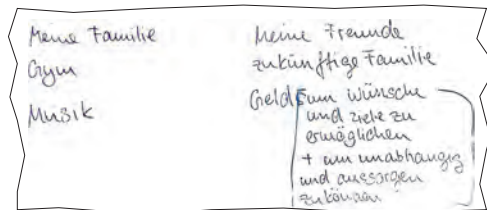 Meine Familie
Gym
Musik
Meine Freunde
zukünftige Familie
Geld um wünsche
und ziele zu
ermöglichen
+ um unabhängig
und aussorgen
zu können